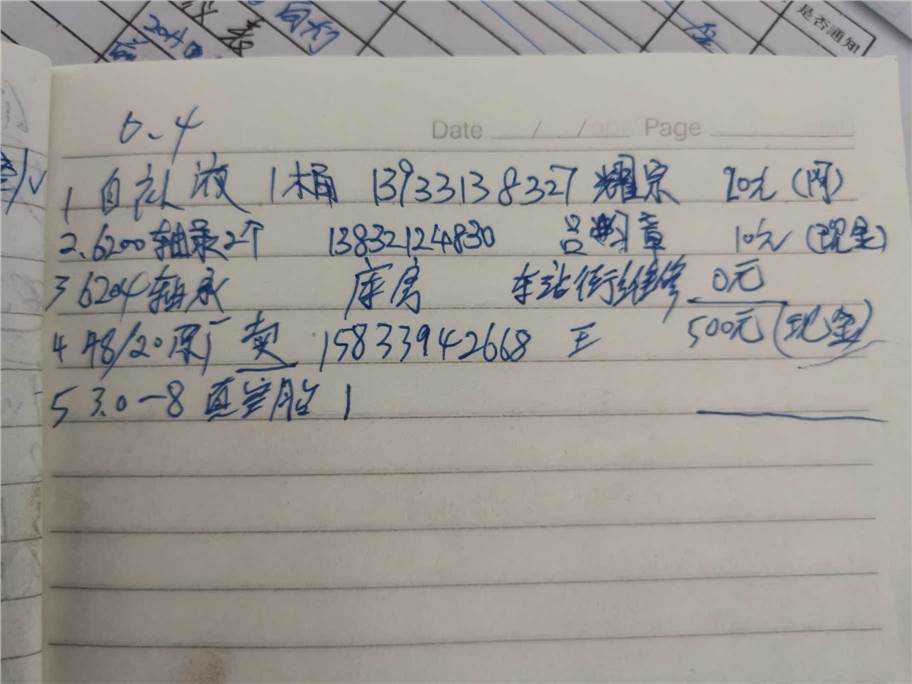 是否通知
6.4
Date / / Page
1 自补液 1桶 13933138327 耀宗 20元 (网)
2.6200轴承2个 13832124830 吕 章 10元 (现金)
3 6204轴承 库房 车站街维修 0元
4 48/20原厂卖 15833942668 王 500元(现金)
5 3.0-8真空胎 1